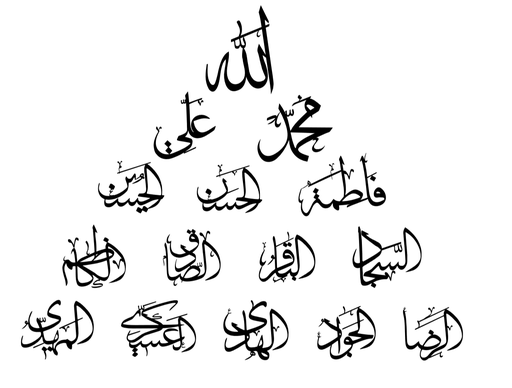 الله
محمد علي
فاطمة الحسن الحسين
السجاد الباقر الصادق الكاظم
الرضا الجواد الهادي العسكري المهدي